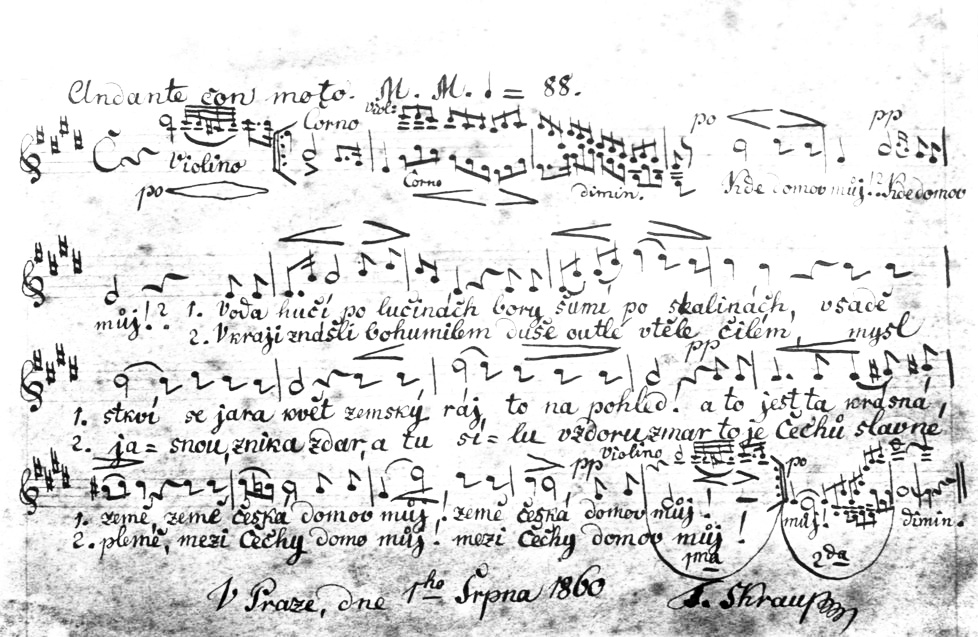 Andante con moto. M. M. ♩ = 88.
Violino Corno Viol:
po Corno dimin. po pp
Kde domov můj!? Kde domov
můj!? 1. Voda hučí po lučinách bory šumí po skalinách, v sadě
2. V kraji znášli bohumilem duše outlé v těle čilém, mysl
pp
1. stkví se jara květ zemský ráj to na pohled! a to jest ta krásná
2. ja = snou, znika zdar, a tu sí = lu vzdoru zmar to je Čechů slavné
pp Violino po
1. země, země česká domov můj! země česká domov můj! můj! dimin.
2. plémě, mezi Čechy domov můj! mezi Čechy domov můj!
1ma 2da
V Praze, dne 1ho Srpna 1860 F. Skraup